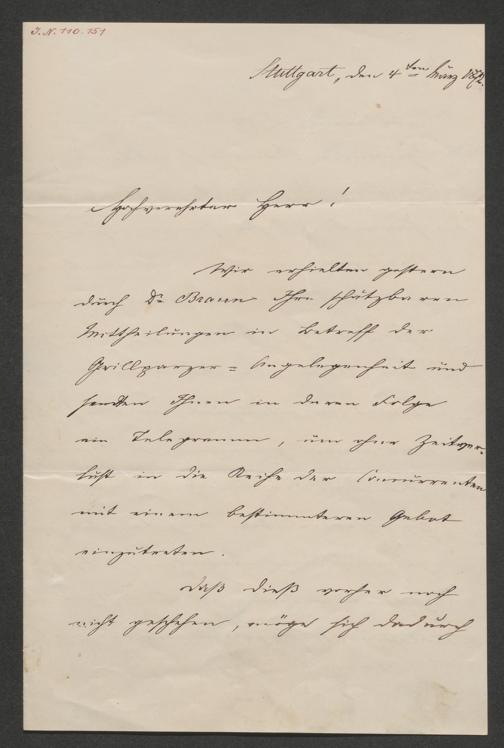 J.N. 110.151
Stuttgart, den 4ten März 1872.
Hochverehrter Herr!
Wir erhielten gestern
durch Dr Braun Ihre schätzbaren
Mittheilungen in Betreff der
Grillparzer=Angelegenheit und
sandten Ihnen in deren Folge
ein Telegramm, um ohne Zeitver-
lust in die Reihe der Concurrenten
mit einem bestimmteren Gebot
einzutreten.
Daß dieß vorher noch
nicht geschehen, möge sich dadurch